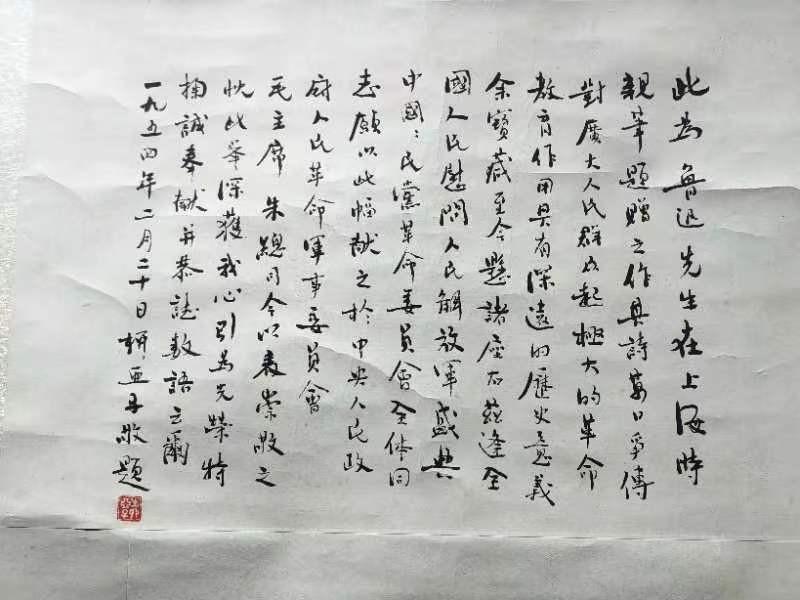 此为鲁迅先生在上海時
親笔題贈之作其詩萬口爭傳
對廣大人民群众起極大的革命
教育作用具有深遠的歷史意義
余寶藏至今懸諸座右茲逢全
國人民慰問人民解放軍盛典
中國〻民黨革命委員會全体同
志願以此幅献之於中央人民政
府人民革命軍事委員會
毛主席朱總司令以表崇敬之
忱此举深獲我心引為光榮特
掬誠奉献并恭誌數語云爾
一九五四年二月二十日柳亞子敬題